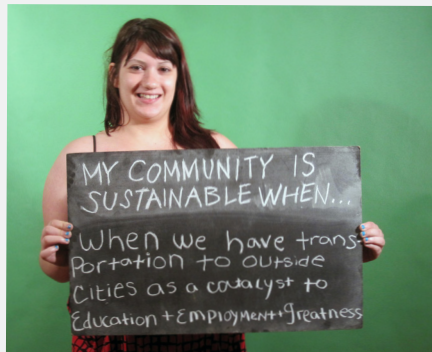 MY COMMUNITY IS
SUSTAINABLE WHEN...
When we have trans-
portation to outside
cities as a catalyst to
Education + EmployMent + greatness